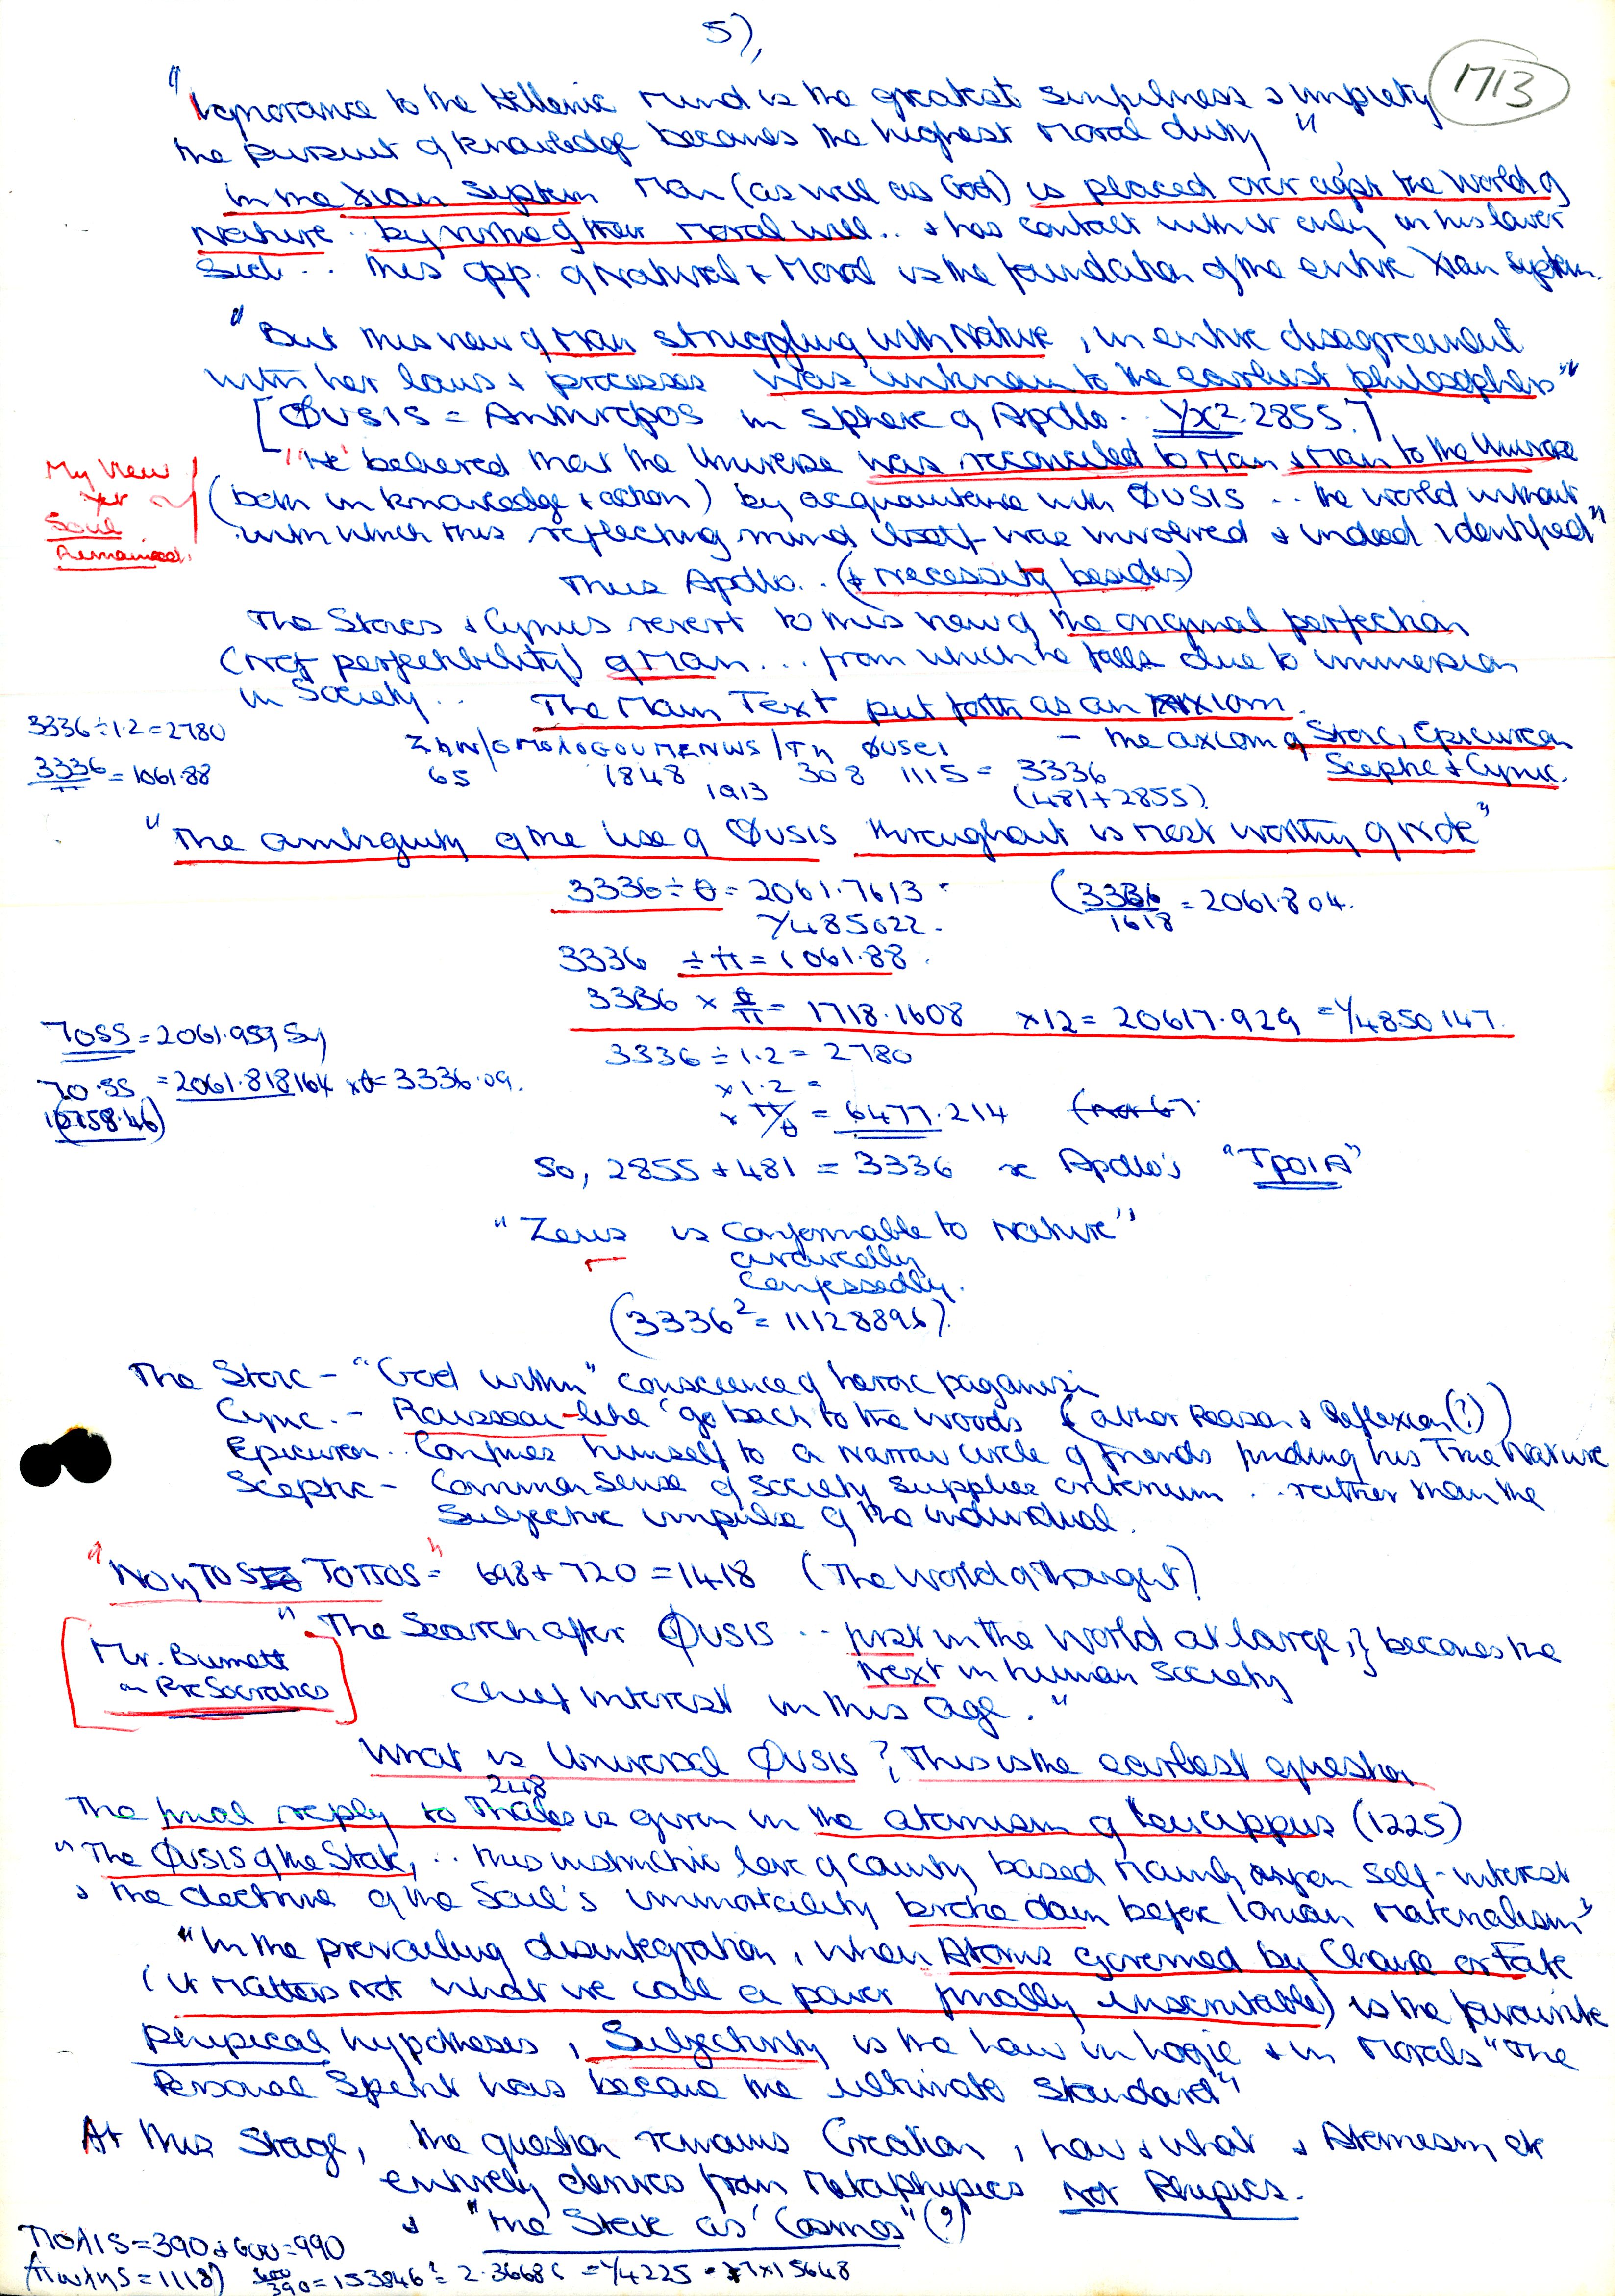 5),
1713
"Ignorance to the Hellenic mind is the greatest sinfulness & impiety
the pursuit of knowledge becomes the highest moral duty"
In the Xian System Man (as well as God) is placed over agst the World of
Nature .. by virtue of their moral will .. & has contact with it only in his lower
side .. this opp. of Natural & Moral is the foundation of the entire Xian system.
"But this view of Man struggling with Nature, in entire disagreement
with her laws & processes was unknown to the earliest philosophers"
[ØUSIS = Anthropos in sphere of Apollo .. 2855.]
"He believed that the Universe was reconciled to Man & Man to the Universe
My View
Soul
Remained.
(both in knowledge & action) by acquaintance with ØUSIS .. the world without
with which this reflecting mind itself was involved & indeed identified"
Thus Apollo .. (& Necessity besides)
The Stoics & Cynics revert to this view of the original perfection
(not perfectibility) of Man ... from which he falls due to immersion
in Society .. The Main Text put forth as an AXIOM.
3336 ÷ 1.2 = 2780
3336/π = 1061.88
ZηN/OMOLOGOUMENWS/Tη ØUSEI - the axiom of Stoic, Epicurean
Sceptic & Cynic.
65 1848 308 1115 = 3336
1913 (481+2855).
"The ambiguity of the use of ØUSIS throughout is most worthy of note"
3336 ÷ θ = 2061.7613 (3336/1618 = 2061.804.
Y485022.
3336 ÷ π = 1061.88.
3336 × θ/π = 1718.1608 ×12 = 20617.929 = Y4850147.
7055 = 2061.959
3336 ÷ 1.2 = 2780
70.55 = 2061.818164 × θ = 3336.09.
×1.2 =
× π/θ = 6477.214
(10758.46)
So, 2855 + 481 = 3336 Apollo's "TροιA"
"Zeus is conformable to nature"
confessedly.
(3336² = 11128896).
The Stoic - "God within" conscience of heroic paganism
Cynic. - Rousseau-like 'go back to the woods (Reason & Reflexion(?))
Epicurean .. Confines himself to a narrow circle of friends finding his True Nature
Sceptic - Common Sense of Society supplies criterium .. rather than the
subjective impulse of the individual.
"NOηTOS TOΠOS" = 698 + 720 = 1418 (The World of Thought)
"The Search after ØUSIS .. first in the World at large,} becomes the
next in human society
Mr. Burnett
on PreSocratics
chief interest in this age."
What is Universal ØUSIS? This is the earliest question
248
The final reply to Thales is given in the atomism of Leucippus (1225)
"The ØUSIS of the State, .. this instinctive love of country based mainly upon self-interest
& the doctrine of the Soul's immortality broke down before Ionian materialism"
"In the prevailing disintegration, when Atoms governed by Chance or Fate
(it matters not what we call a power finally inscrutable) is the favourite
Physical hypotheses, Subjectivity is the law in logic & in morals "The
Personal Spirit has become the ultimate standard"
At this Stage, the question remains Creation, how & what & Atomism etc
entirely derives from Metaphysics not Physics.
& "the State as 'Cosmos'"(?)
ΠOλIS = 390 + 600 = 990
= 1118) 600/390 = 153846 = 2.36686 = Y4225